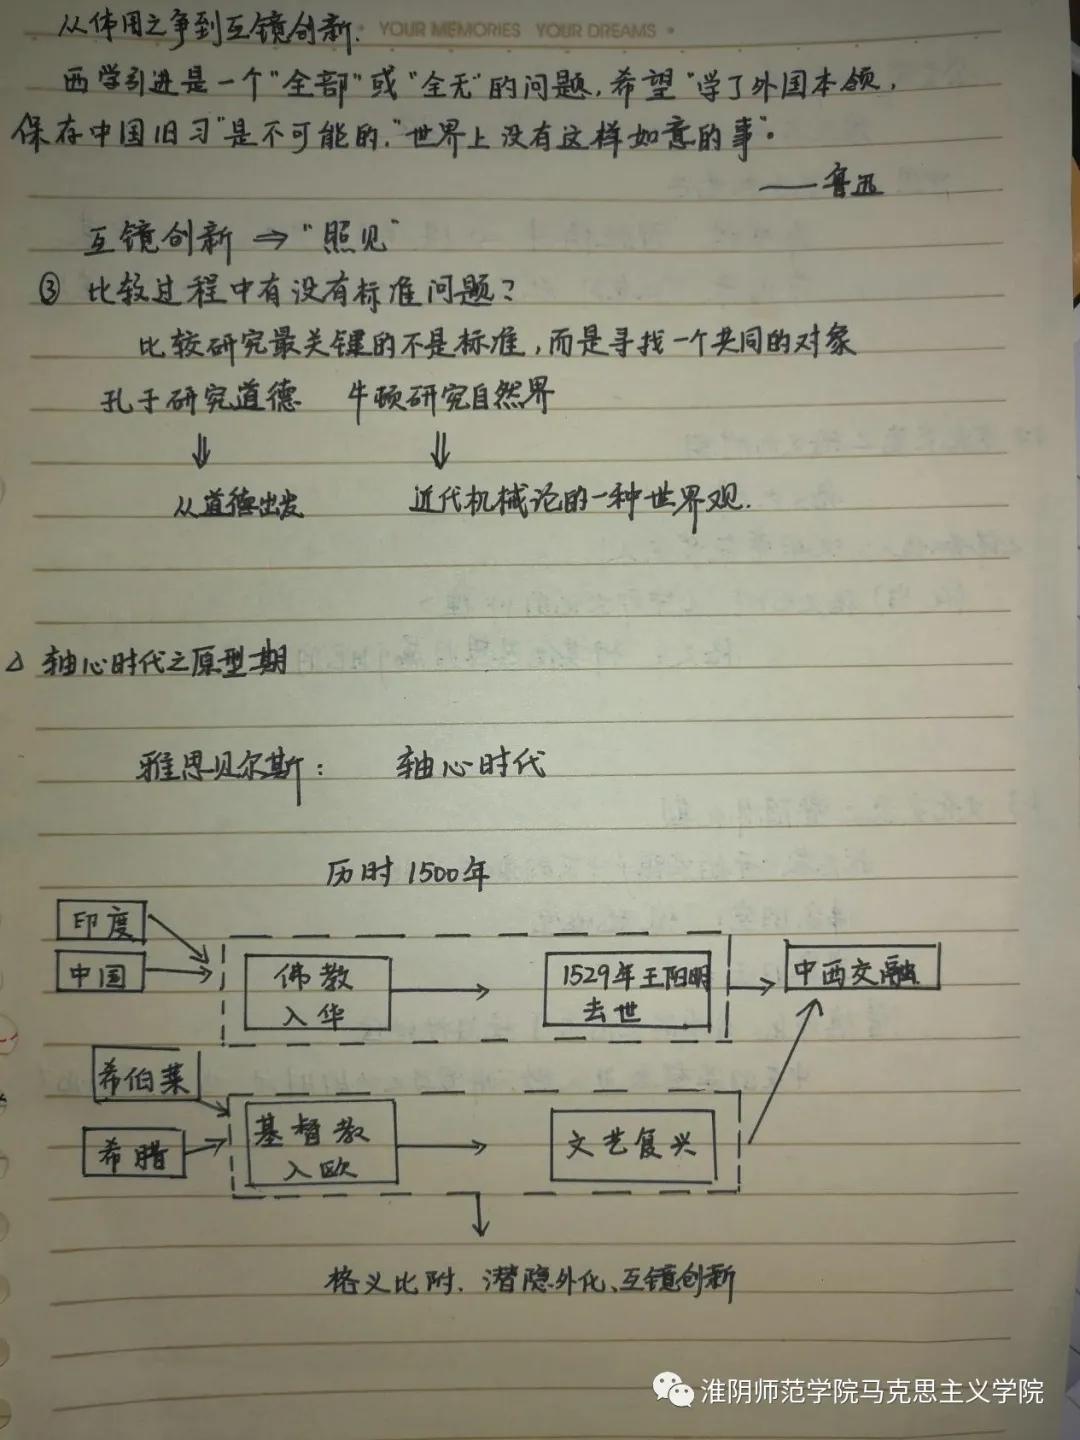 从体用之争到互镜创新.
YOUR MEMORIES YOUR DREAMS
西学引进是一个"全部"或"全无"的问题,希望"学了外国本领,
保存中国旧习"是不可能的,"世界上没有这样如意的事"。
——鲁迅
互镜创新 ⇒ "照见"
③ 比较过程中有没有标准问题?
比较研究最关键的不是标准,而是寻找一个共同的对象
孔子研究道德 牛顿研究自然界
⇓ ⇓
从道德出发 近代机械论的一种世界观.
△ 轴心时代之原型期
雅思贝尔斯: 轴心时代
历时1500年
印度
中国
佛教入华
1529年王阳明去世
中西交融
希伯莱
希腊
基督教入欧
文艺复兴
格义比附、潜隐外化、互镜创新
淮阴师范学院马克思主义学院